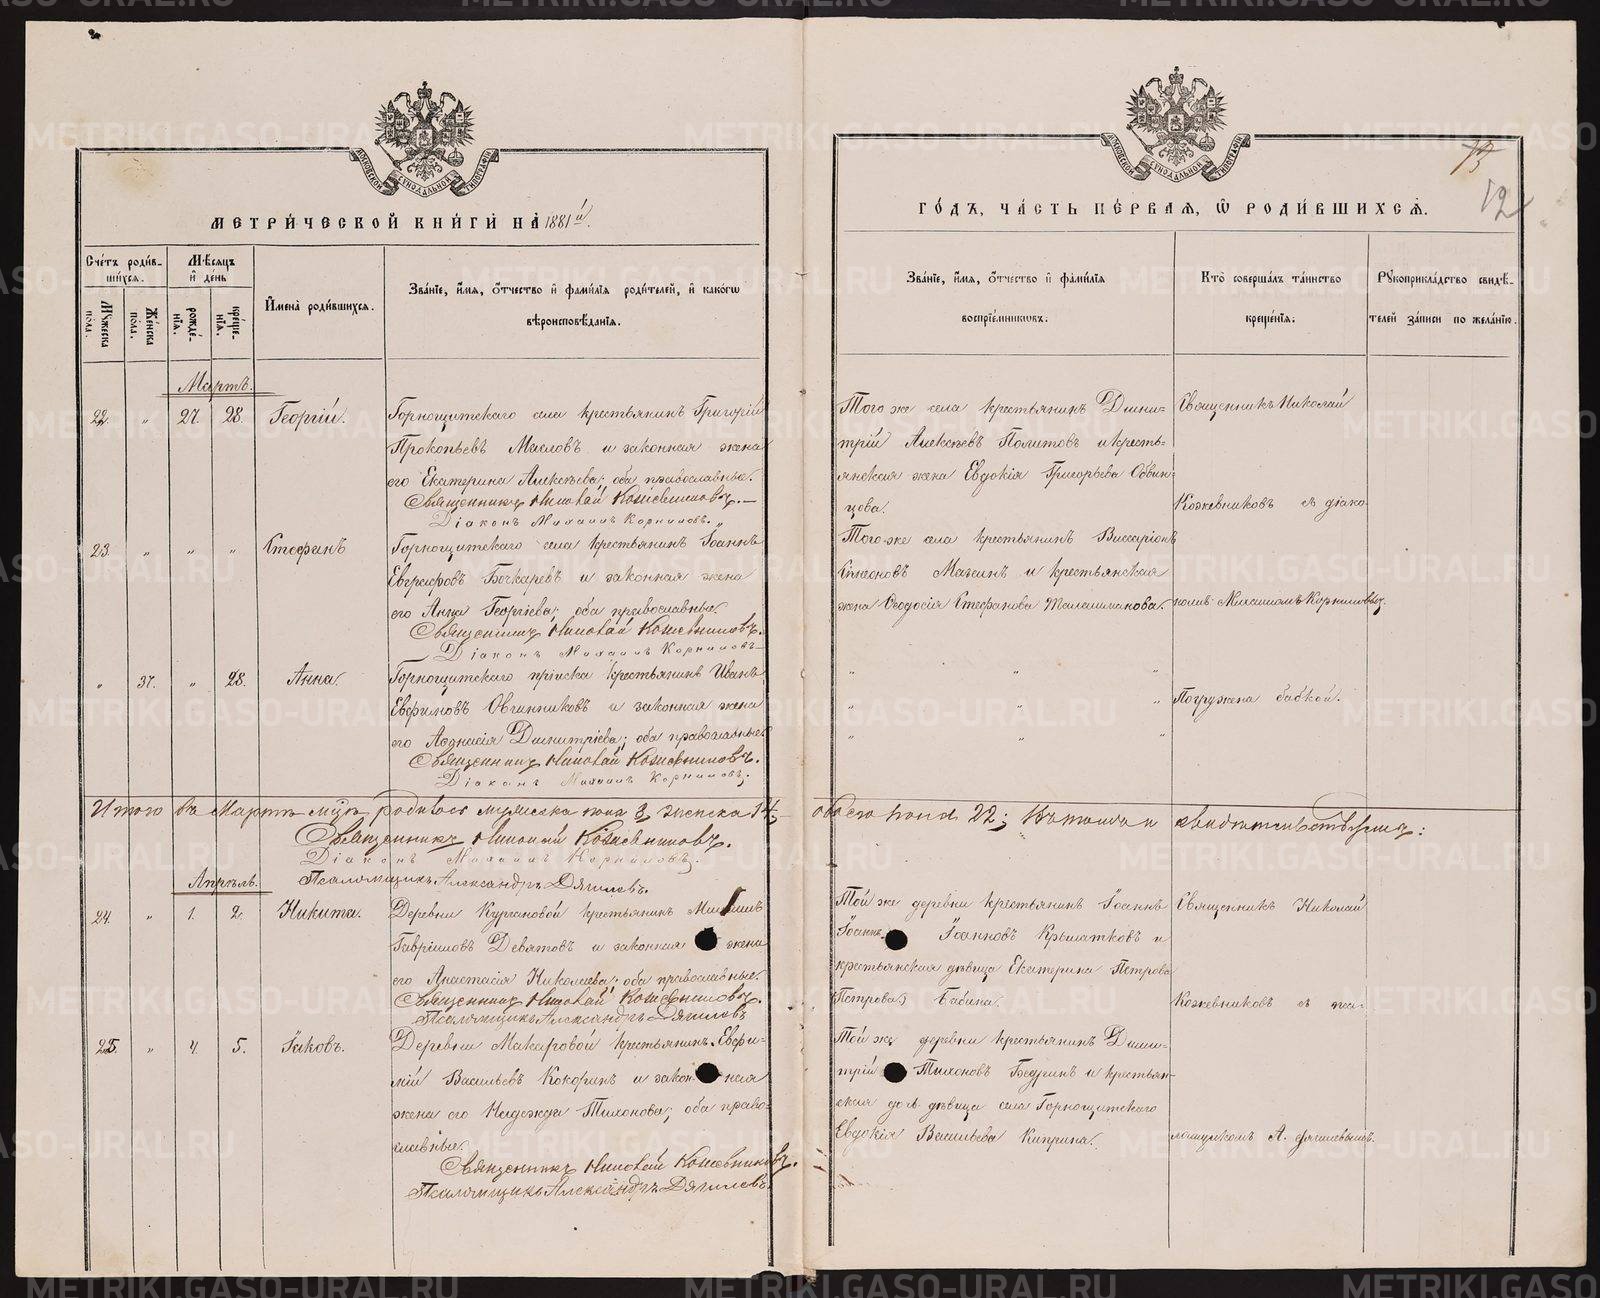 МЕТРИ́ЧЕСКОЙ КНИ́ГИ НА̀ 1881й.
Сче́тъ роди́в-
ши́хся.
Мѣ́сяцъ
и де́нь
Му́жеска
по́ла.
Же́нска
по́ла.
рожде́-
нїя.
креще́-
нїя.
И҆мена̀ роди́вшихся.
Зва́нїе, и҆́мя, о҆́тчество и҆ фами́лїя роди́телей, и҆ како́гѡ
вѣроисповѣ́данїя.
Мартъ.
22. „ 27. 28. Георгій.
Горнощитскаго села крестьянинъ Григорій
Прокопьевъ Масловъ и законная жена
его Екатерина Алексѣева; оба православные.
Священникъ Николай Кожевниковъ.
Діаконъ Михаилъ Корниловъ.
23. „ „ „ Стефанъ
Горнощитскаго села крестьянинъ Іоаннъ
Евграфовъ Бочкаревъ и законная жена
его Анна Георгіева; оба православные.
Священникъ Николай Кожевниковъ.
Діаконъ Михаилъ Корниловъ
„ 37. „ 28. Анна.
Горнощитскаго пріиска крестьянинъ Иванъ
Евфимовъ Овчинниковъ и законная жена
его Аѳанасія Димитріева; оба православные.
Священникъ Николай Кожевниковъ.
Діаконъ Михаилъ Корниловъ.
Итого въ Мартѣ мцѣ родилось мужеска пола 8, женска 14;
Священникъ Николай Кожевниковъ.
Діаконъ Михаилъ Корниловъ.
Псаломщикъ Александръ Дягилевъ.
Апрѣль.
24. „ 1. 2. Никита.
Деревни Кургановой крестьянинъ Михаилъ
Гавріиловъ Девятовъ и законная жена
его Анастасія Николаева; оба православные.
Священникъ Николай Кожевниковъ.
Псаломщикъ Александръ Дягилевъ
25. „ 4. 5. Іаковъ.
Деревни Макаровой крестьянинъ Евфи-
мій Васильевъ Кокоринъ и законная
жена его Надежда Тихонова; оба право-
славные.
Священникъ Николай Кожевниковъ.
Псаломщикъ Александръ Дягилевъ
13
12
ГО́ДЪ, ЧА́СТЬ ПЕ́РВАЯ, Ѡ҆ РОДИ́ВШИХСЯ.
Зва́нїе, и҆́мя, о҆́тчество и҆ фами́лїя
воспрїе́мникѡвъ.
Кто̀ соверша́лъ та́инство
креще́нїя.
Рукоприкла́дство свидѣ́-
телей за́писи по жела́нїю.
Того же села крестьянинъ Дими-
трій Алексѣевъ Политовъ и кресть-
янская жена Евдокія Григорьева Обвин-
цова.
Священникъ Николай
Кожевниковъ съ діако-
Того же села крестьянинъ Виссаріонъ
Симеоновъ Мажинъ и крестьянская
жена Ѳеодосія Стефанова Талашманова.
номъ Михаиломъ Корниловымъ.
„ „ „
„ „ „
„ „ „
Погружена бабкой.
обоего пола 22; въ томъ и свидѣтельствуемъ:
Той же деревни крестьянинъ Іоаннъ
Іоанн. Іоанновъ Крылатковъ и
крестьянская дѣвица Екатерина Петрова
Петрова) Бабина.
Священникъ Николай
Кожевниковъ съ пса-
Той же деревни крестьянинъ Дими-
трій Тихоновъ Бедринъ и крестьян-
ская дочь дѣвица села Горнощитскаго
Евдокія Васильева Киприна.
ломщикомъ А. Дягилевымъ.
METRIKI.GASO-URAL.RU